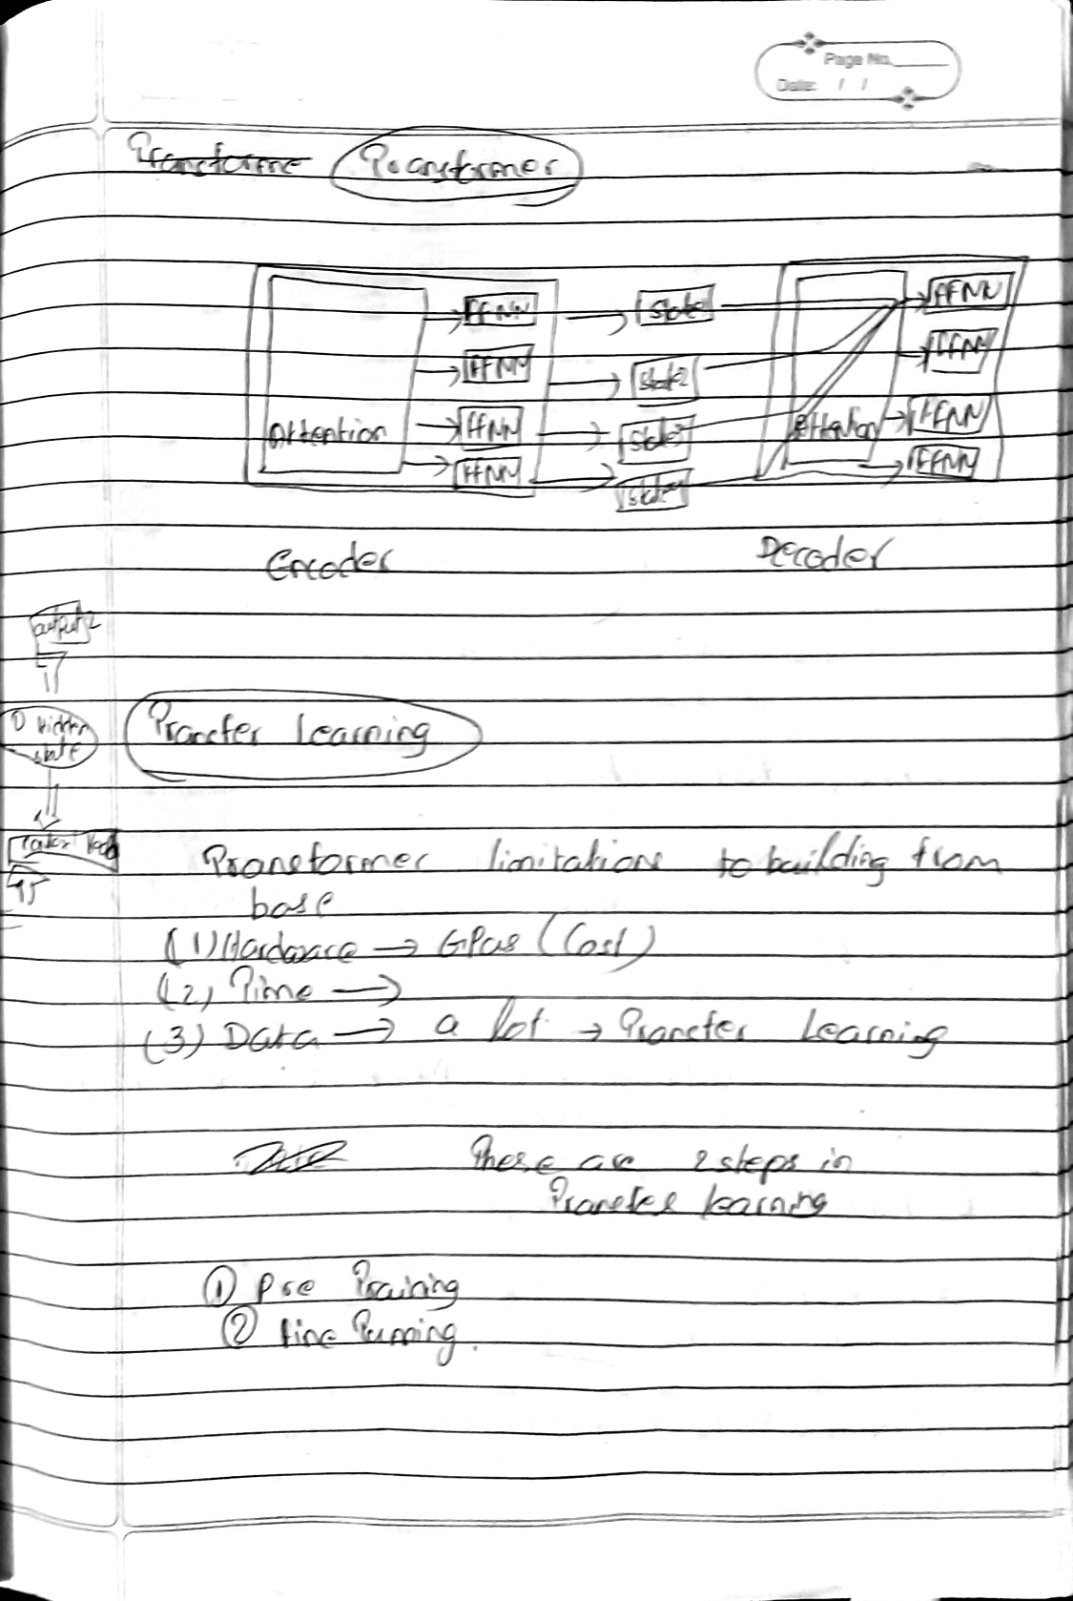 Page No.
Date: / /
Transforme Transformer
FFNN State1 FFNN
FFNN State2 FFNN
Attention FFNN State3 Attention FFNN
FFNN State4 FFNN
Encoder Decoder
output2
hidden
state
Transfer Learning
Transformer limitations to building from
base
(1) Hardware → GPUs (Cost)
(2) Time →
(3) Data → a lot → Transfer Learning
There are 2 steps in
Transfer learning
① Pre Training
② Fine Tunning.